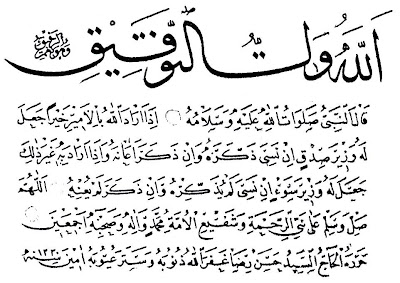 الله ولي التوفيق
وهو نعم الرفيق
قال النبي صلوات الله عليه وسلامه إذا أراد الله بالأمير خيرا جعل
له وزير صدق إن نسي ذكره وإن ذكر أعانه وإذا أراد به غير ذلك
جعل له وزير سوء إن نسي لم يذكره وإن ذكر لم يعنه اللهم
صل وسلم على نبي الرحمة وشفيع الأمة محمد وآله وصحبه أجمعين
حرره الحاج السيد حسن رضا غفر الله ذنوبه وستر عيوبه آمين سنه